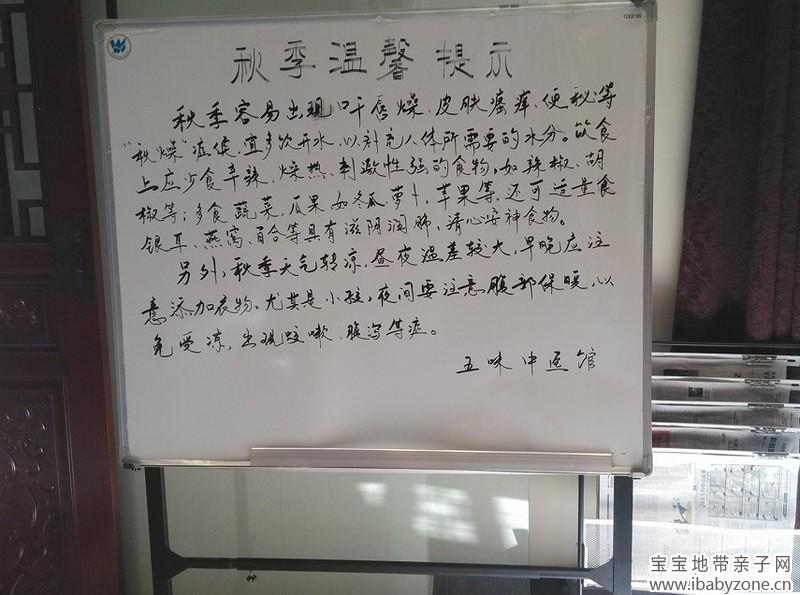 秋季温馨提示
秋季容易出现口干唇燥、皮肤瘙痒、便秘等
"秋燥"症候,宜多饮开水,以补充人体所需要的水分。饮食
上应少食辛辣、燥热、刺激性强的食物,如辣椒、胡
椒等;多食蔬菜,瓜果如冬瓜萝卜,苹果等,还可适量食
银耳、燕窝、百合等具有滋阴润肺,清心安神食物。
另外,秋季天气转凉,昼夜温差较大,早晚应注
意添加衣物。尤其是小孩,夜间要注意腹部保暖,以
免受凉,出现咳嗽、腹泻等症。
五味中医馆
宝宝地带亲子网
www.ibabyzone.cn